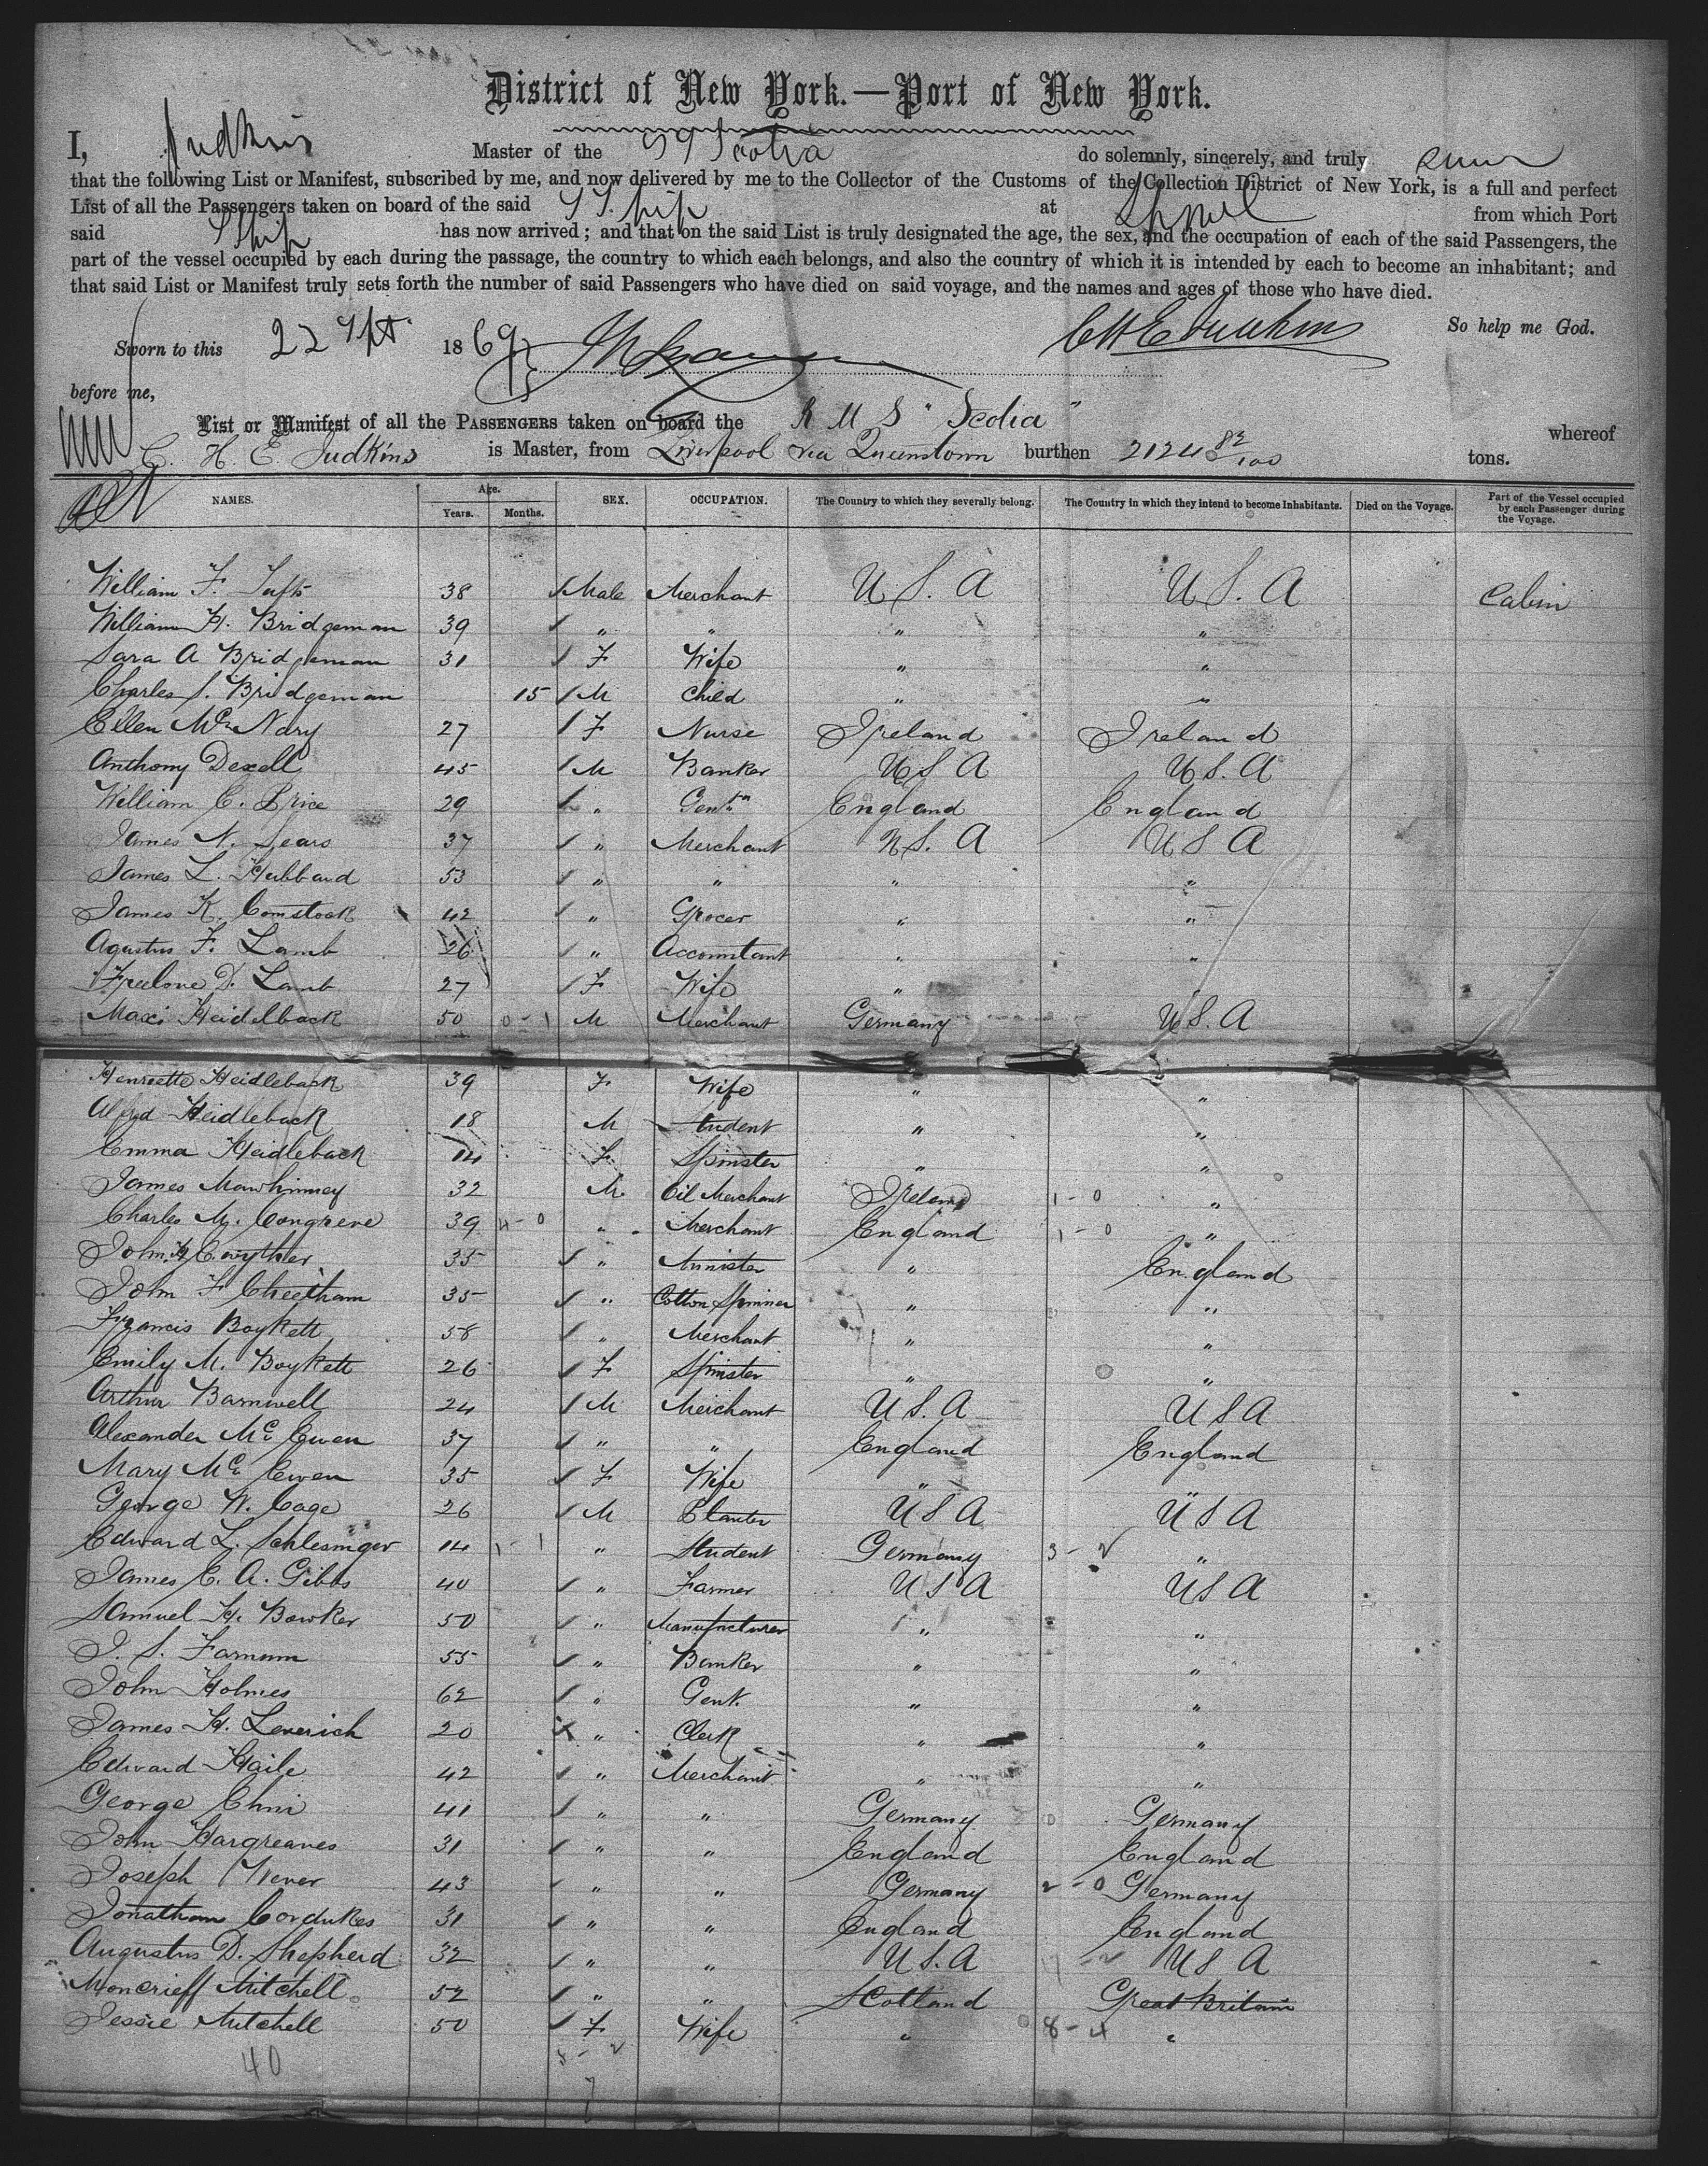 District of New York.—Port of New York.
I, Judkins Master of the SS Scotia do solemnly, sincerely, and truly swear
that the following List or Manifest, subscribed by me, and now delivered by me to the Collector of the Customs of the Collection District of New York, is a full and perfect
List of all the Passengers taken on board of the said SS. Ship at Lpool from which Port
said SShip has now arrived; and that on the said List is truly designated the age, the sex, and the occupation of each of the said Passengers, the
part of the vessel occupied by each during the passage, the country to which each belongs, and also the country of which it is intended by each to become an inhabitant; and
that said List or Manifest truly sets forth the number of said Passengers who have died on said voyage, and the names and ages of those who have died.
So help me God.
Sworn to this 22 Spt 1869 CHE Judkins
before me,
List or Manifest of all the PASSENGERS taken on board the R M S "Scotia" whereof
C. H. E Judkins is Master, from Liverpool via Queenstown burthen 2124 82/100 tons.
NAMES. Age. Years. Months. SEX. OCCUPATION. The Country to which they severally belong. The Country in which they intend to become Inhabitants. Died on the Voyage. Part of the Vessel occupied by each Passenger during the Voyage.
William F. Tufts 38 Male Merchant U S. A U S. A Cabin
William H. Bridgeman 39 " " " "
Sara A Bridgeman 31 F Wife " "
Charles S. Bridgeman 15 M Child " "
Ellen Mc Nary 27 F Nurse Ireland Ireland
Anthony Dexell 45 M Banker U S A U S. A
William C. Price 29 " Gentn England England
James N. Sears 37 " Merchant U S. A U S A
James L. Hubbard 53 " " " "
James K. Comstock 42 " Grocer " "
Agustus F. Lamb 26 " Accountant " "
Freelove D. Lamb 27 F Wife " "
Max Heidelback 50 0-1 M Merchant Germany U S. A
Henriette Heidleback 39 F Wife " "
Alfred Heidleback 18 M Student " "
Emma Heidleback 14 F Spinster " "
James Mawhinney 32 M. Oil Merchant Ireland 1-0 "
Charles M. Congreve 39 4-0 " Merchant England 1-0 "
John H Gwyther 35 " Minister " England
John F Cheetham 35 " Cotton Spinner " "
Francis Boykett 58 " Merchant " "
Emily M. Boykett 26 F Spinster " "
Arthur Barnwell 24 M Merchant U S. A U S A
Alexander Mc Ewen 37 " " England England
Mary Mc Ewen 35 F Wife " "
George W. Cage 26 M Planter U S A U S A
Edward L. Schlesinger 14 1-1 " Student Germany 3-2 "
James E. A. Gibbs 40 " Farmer U S A U S A
Samuel H. Bowker 50 " Manufacturer " "
J. S. Farnum 55 " Banker " "
John Holmes 62 " Gent. " "
James H. Leverich 20 " Clerk " "
Edward Haile 42 " Merchant " "
George Chni 41 " " Germany Germany
John Hargreaves 31 " " England England
Joseph Wener 43 " " Germany 2-0 Germany
Jonathan Cordukes 31 " " England England
Augustus D. Shepherd 32 " " U S. A U S A
Moncrieff Mitchell 52 " " Scotland Great Britain
Jessie Mitchell 50 F Wife " 8-4 "
40